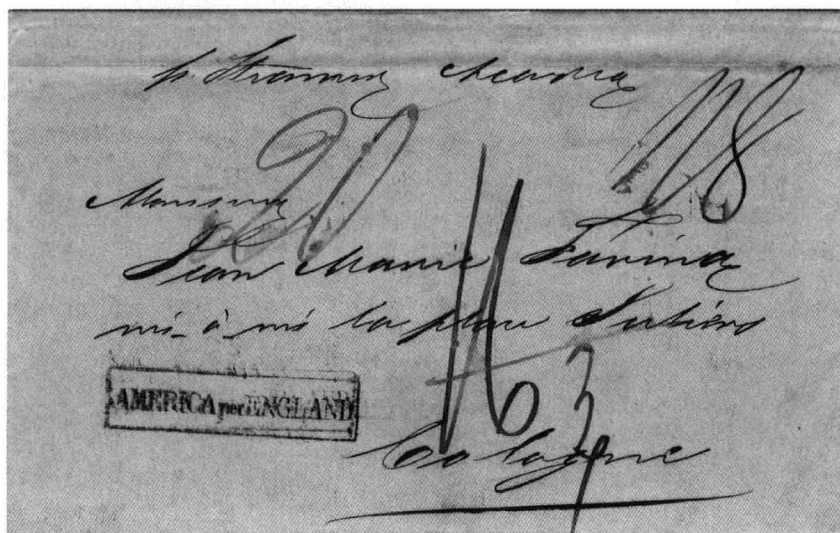 p Steamer Acadia
20
118
Monsieur
Jean Marie Farina
vis-à-vis la place Juliers
AMERICA per ENGLAND
16
Cologne